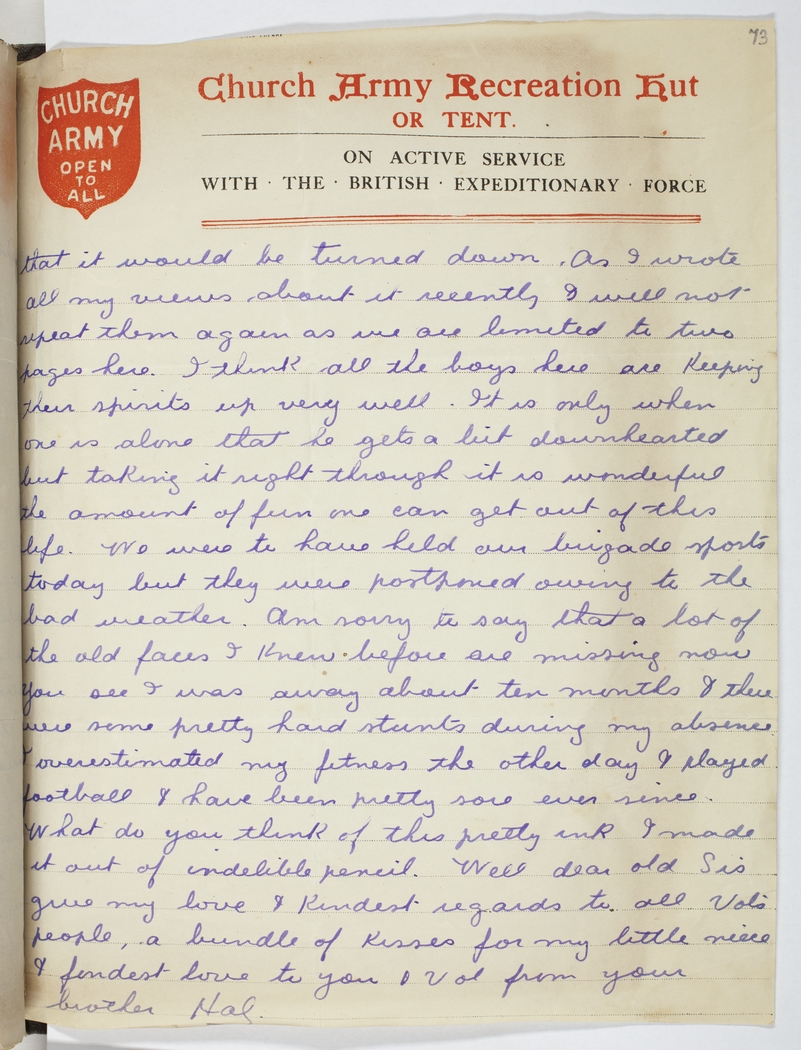 73
CHURCH
ARMY
OPEN
TO
ALL
Church Army Recreation Hut
OR TENT.
ON ACTIVE SERVICE
WITH · THE · BRITISH · EXPEDITIONARY · FORCE
that it would be turned down. As I wrote
all my views about it recently I will not
repeat them again as we are limited to two
pages here. I think all the boys here are Keeping
their spirits up very well. It is only when
one is alone that he gets a bit downhearted
but taking it right through it is wonderful
the amount of fun one can get out of this
life. We were to have held our brigade sports
today but they were postponed owing to the
bad weather. Am sorry to say that a lot of
the old faces I Knew before are missing now
You see I was away about ten months & there
were some pretty hard stunts during my absence.
I overestimated my fitness the other day & played
football & have been pretty sore ever since.
What do you think of this pretty ink I made
it out of indelible pencil. Well dear old Sis
give my love & Kindest regards to all Vols
people, a bundle of Kisses for my little niece
& fondest love to you & Vol from your
brother Hal.